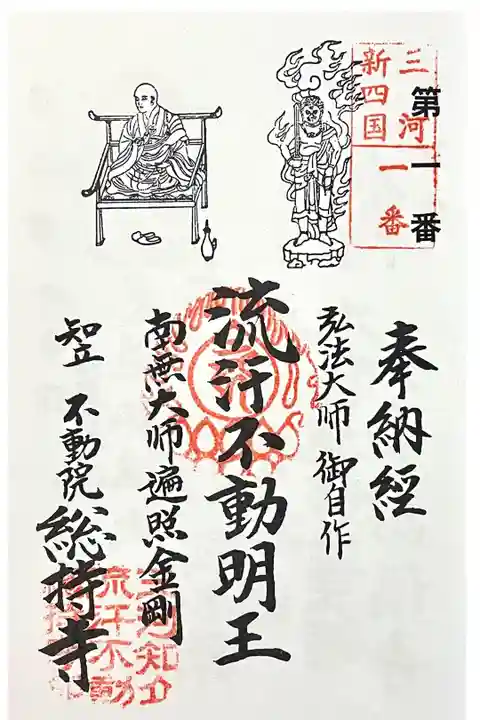 第一番
三河
新四国
一番
奉納經
弘法大師 御自作
流汗不動明王
南無大師遍照金剛
知立 不動院 総持寺
三河知立
流汗不動